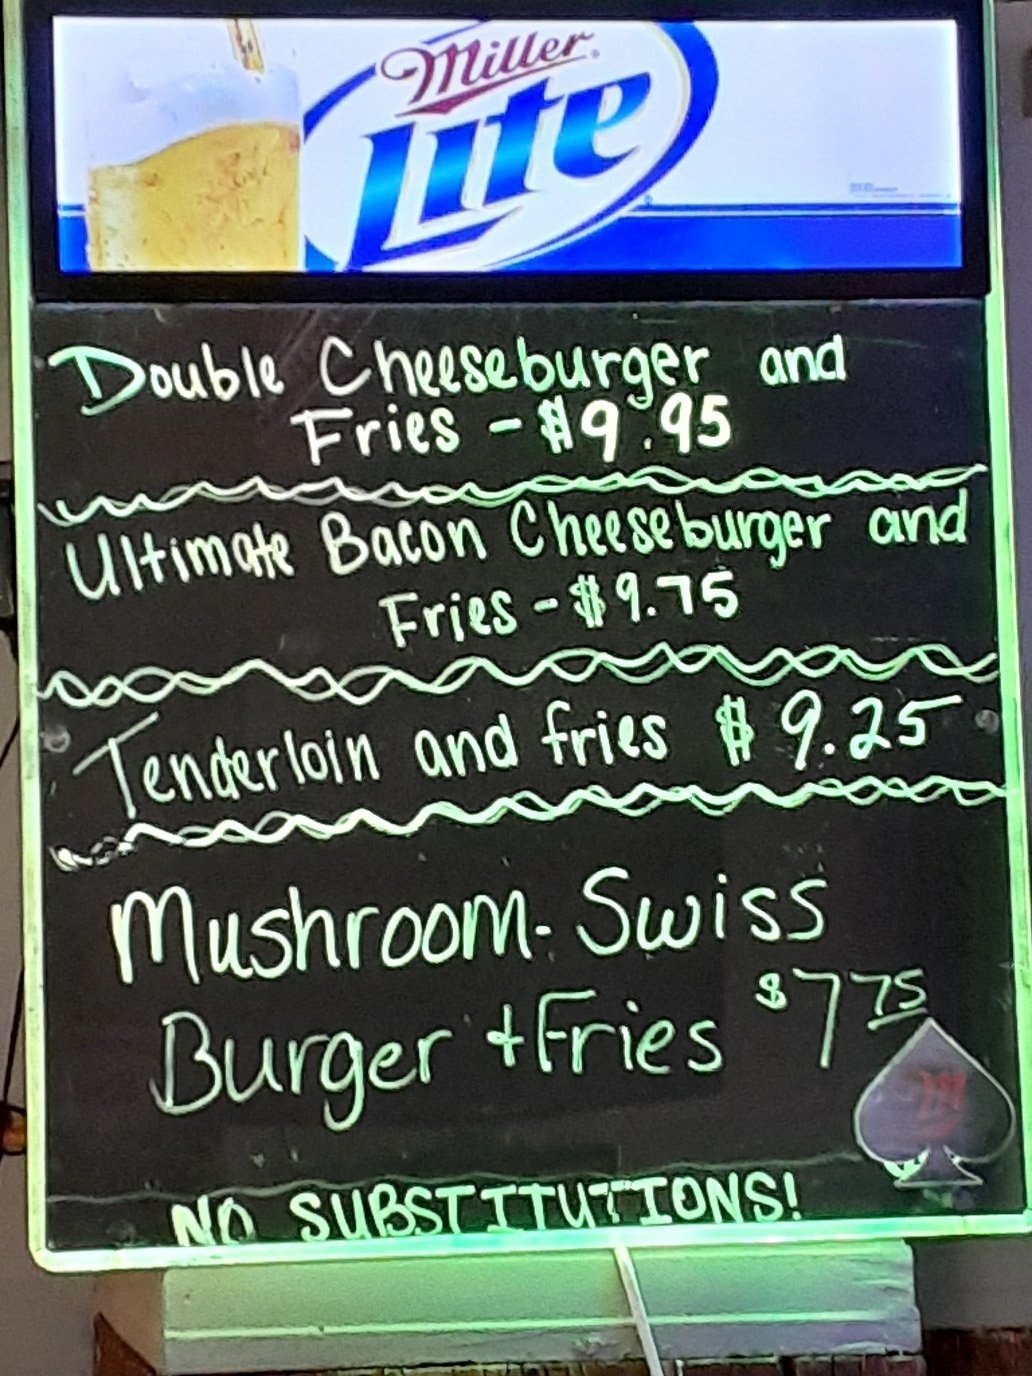 Miller
Lite
Double Cheeseburger and
Fries - $9.95
Ultimate Bacon Cheeseburger and
Fries - $9.75
Tenderloin and fries $9.25
Mushroom-Swiss
Burger + Fries $7 75
M
NO SUBSTITUTIONS!